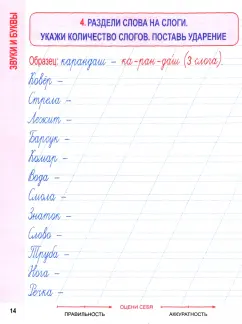 ЗВУКИ И БУКВЫ
4. РАЗДЕЛИ СЛОВА НА СЛОГИ.
УКАЖИ КОЛИЧЕСТВО СЛОГОВ. ПОСТАВЬ УДАРЕНИЕ
Образец: карандаш – ка-ран-да́ш (3 слога).
Ковёр –
Стрела –
Лежит –
Барсук –
Комар –
Вода –
Смола –
Знаток –
Слово –
Труба –
Нога –
Речка –
14
ОЦЕНИ СЕБЯ
ПРАВИЛЬНОСТЬ АККУРАТНОСТЬ